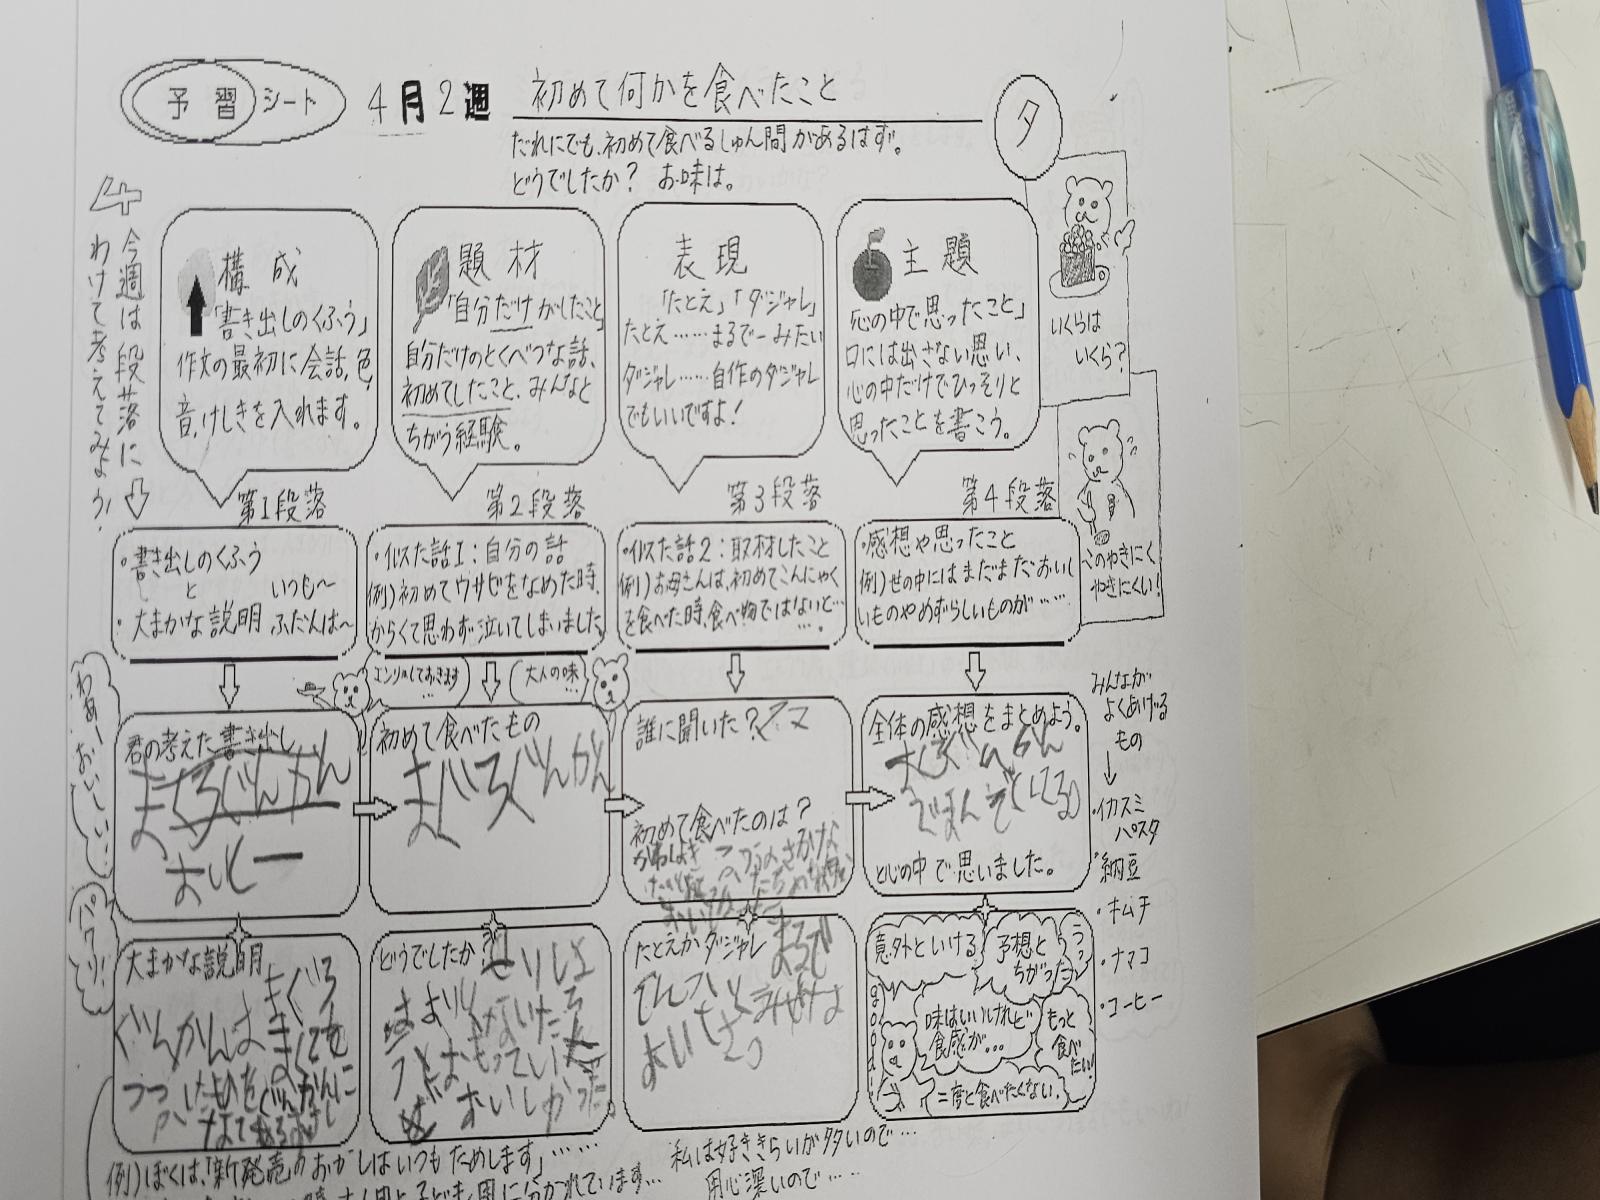 予習シート 4月2週 初めて何かを食べたこと タ
だれにでも、初めて食べるしゅん間があるはず。
どうでしたか? お味は。
4 今週は段落に
わけて考えてみよう!
構成
「書き出しのくふう」
作文の最初に会話、色、
音、けしきを入れます。
題材
「自分だけがしたこと」
自分だけのとくべつな話、
初めてしたこと、みんなと
ちがう経験。
表現
「たとえ」「ダジャレ」
たとえ……まるで―みたい
ダジャレ……自作のダジャレ
でもいいですよ!
主題
「心の中で思ったこと」
口には出さない思い、
心の中だけでひっそりと
思ったことを書こう。
いくらは
いくら?
このやきにく
やきにくい!
第1段落
・書き出しのくふう
と いつも〜
・大まかな説明 ふだんは〜
第2段落
・似た話1:自分の話
例)初めてワサビをなめた時、
からくて思わず泣いてしまいました
第3段落
・似た話2:取材したこと
例)お母さんは、初めてこんにゃく
を食べた時、食べ物ではないと…
…。
第4段落
・感想や思ったこと
例)世の中にはまだまだおいし
いものやめずらしいものが……
わあーおいしいい!
パクとり!
君の考えた書き出し
まぐろぐんかん
おいしー
エンリョしておきます
…
大人の味
…
初めて食べたもの
まぐろぐんかん
誰に聞いた?ママ
初めて食べたのは?
全体の感想をまとめよう。
まぐろぐんかん
と心の中で思いました。
みんなが
よくあげる
もの
↓
・イカスミ
パスタ
・納豆
・キムチ
・ナマコ
・コーヒー
大まかな説明 まぐろ
ぐんかんは
どうでしたか?
おもっていた
おいしかった。
たとえかダジャレ まるで
意外といける
予想と
ちがった
うっ
good!
味はいいけれど
食感が…
もっと
食べたい!
二度と食べたくない。
例)ぼくは、「新発売のおかしはいつもためします」……
私は好ききらいが多いので…
用心深いので……